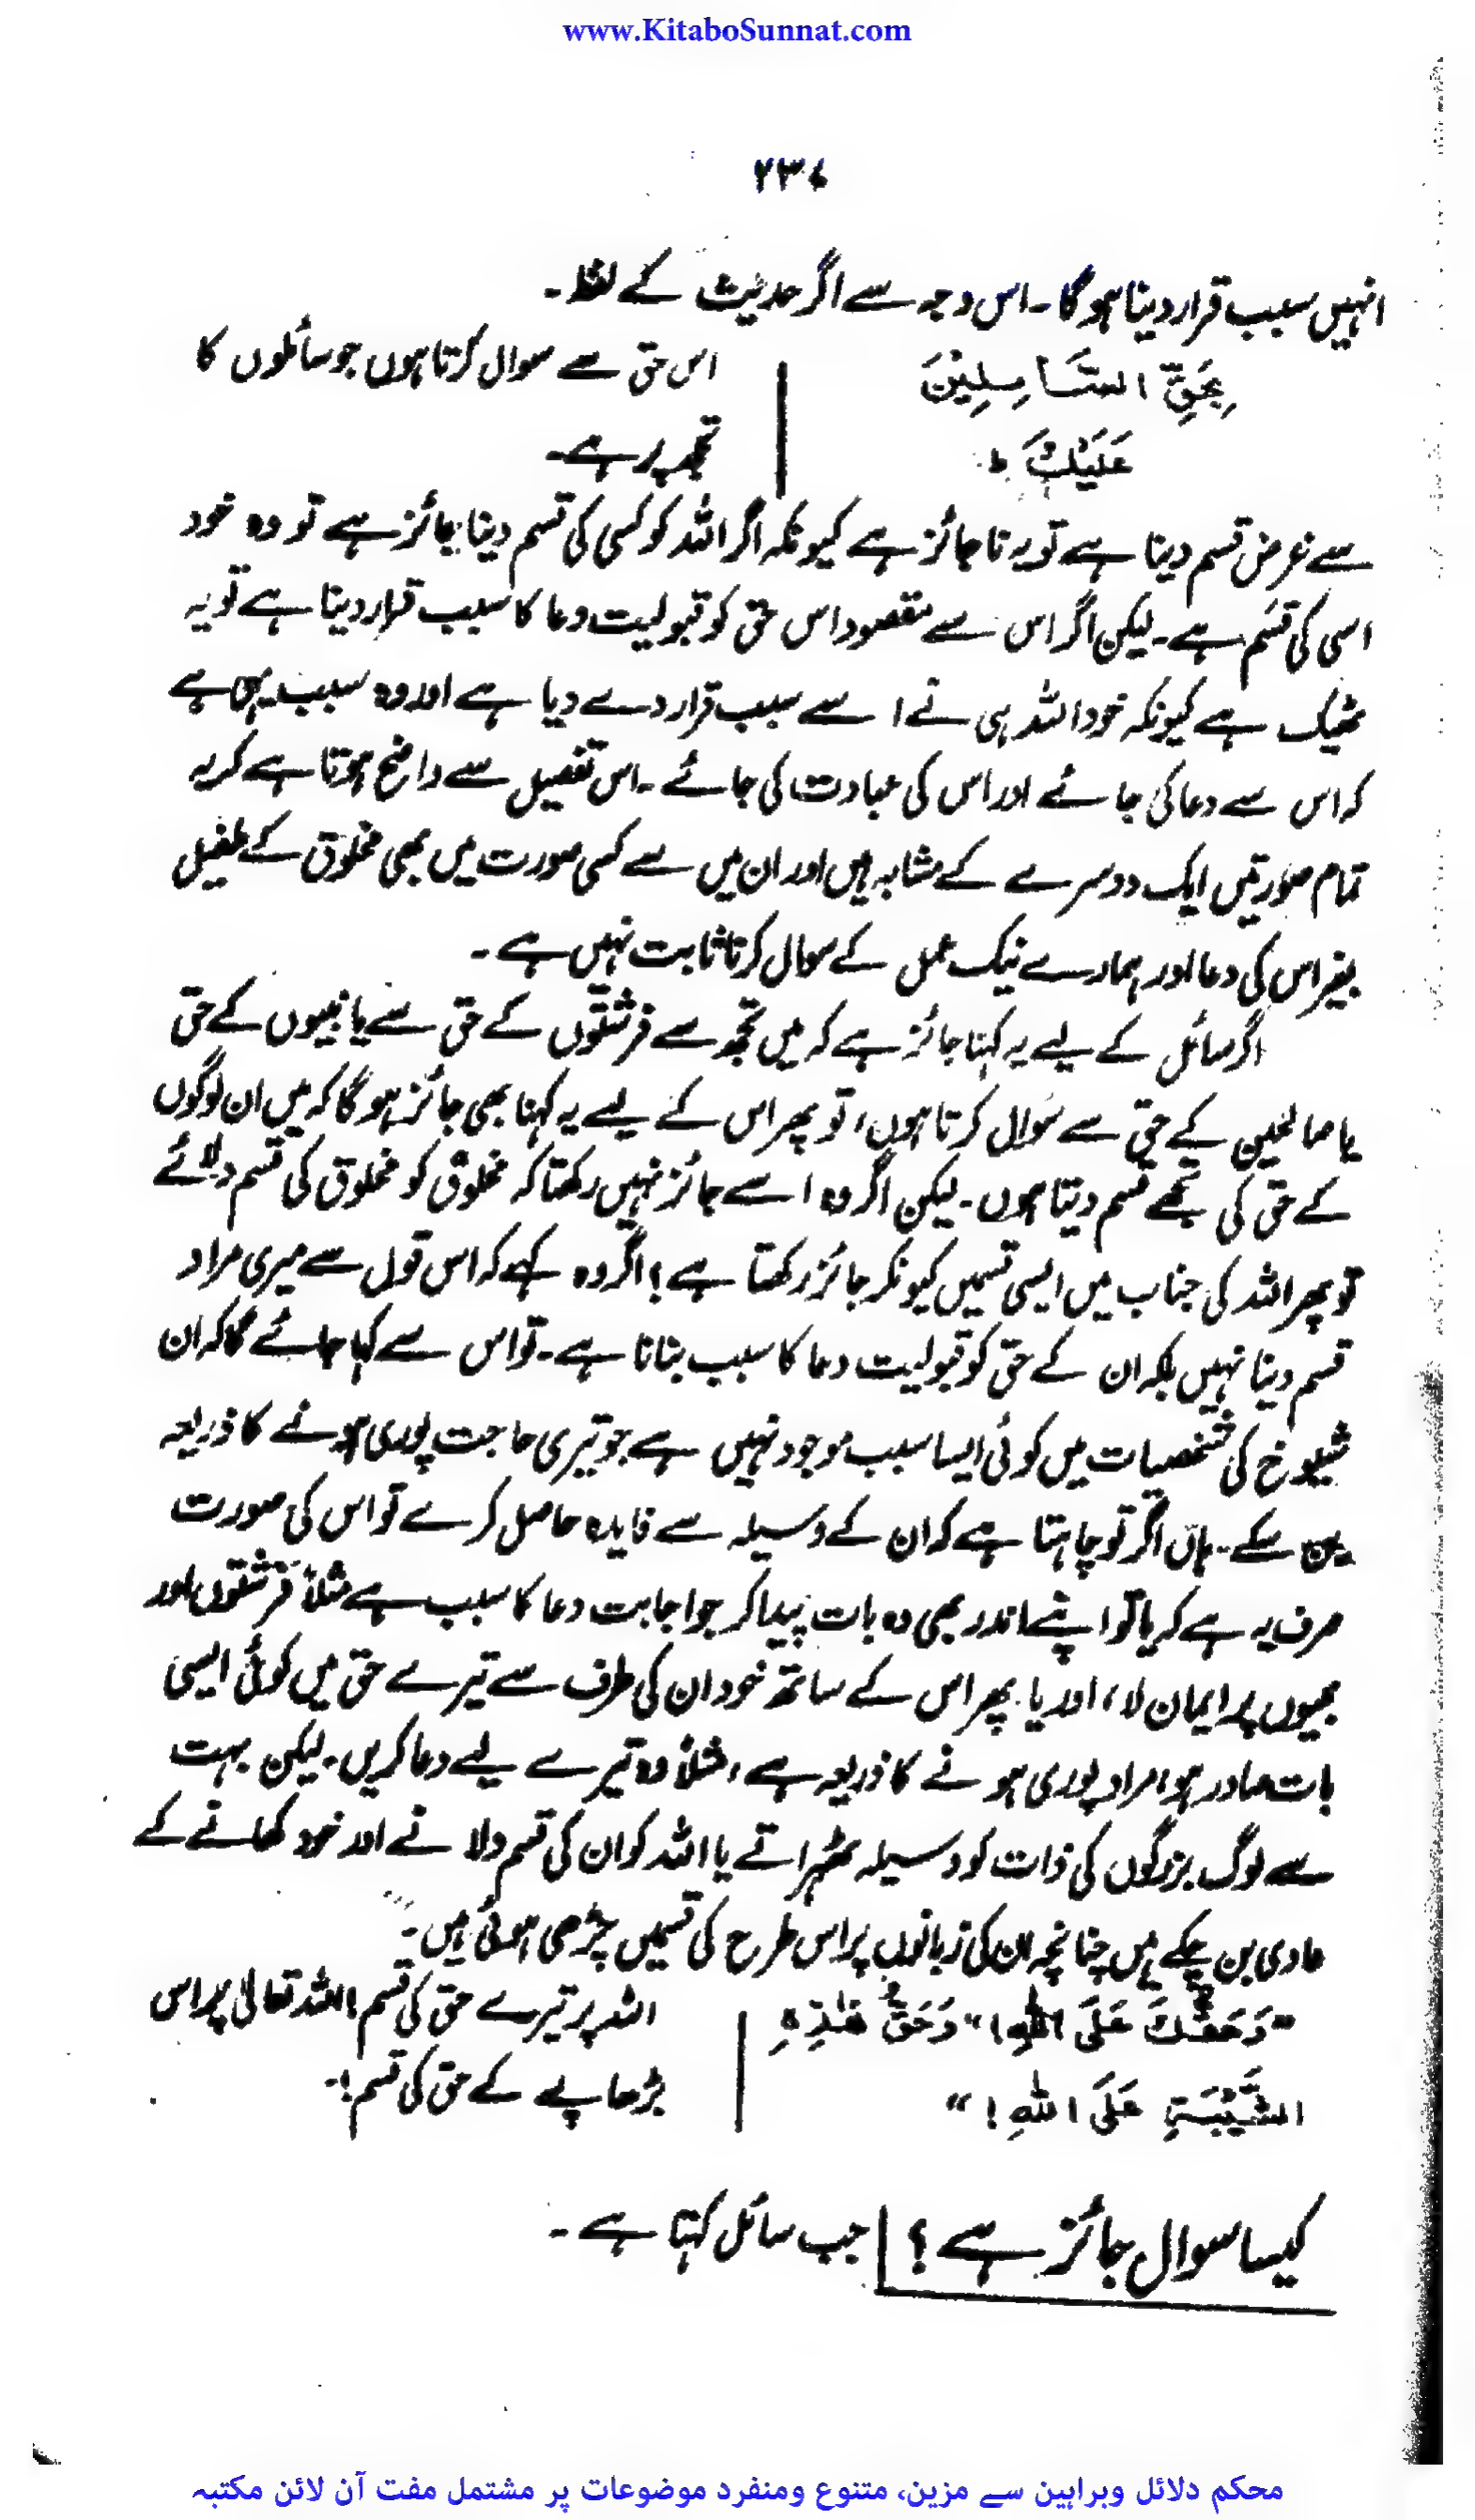 www.KitaboSunnat.com
۲۳۷
انہیں سبب قرار دینا ہوگا۔ اس وجہ سے اگر حدیث کے لفظ۔
بِحَقِّ السَّاىِٕلِيْنَ | اس حق سے سوال کرتا ہوں جو سائلوں کا
عَلَيْكَ | تجھ پر ہے۔
سے غرض قسم دینا ہے تو یہ ناجائز ہے کیونکہ اگر اللہ کو کسی کی قسم دینا جائز ہے تو وہ خود
اسی کی قسم ہے۔ لیکن اگر اس سے مقصود اس حق کو قبولیت دعا کا سبب قرار دینا ہے تو یہ
ٹھیک ہے کیونکہ خود اللہ ہی نے اسے سبب قرار دے دیا ہے اور وہ سبب یہی ہے
کہ اس سے دعا کی جائے اور اس کی عبادت کی جائے۔ اس تفصیل سے واضح ہوتا ہے کہ یہ
تمام صورتیں ایک دوسرے کے مشابہ ہیں اور ان میں سے کسی صورت میں بھی مخلوق کے طفیل
بغیر اس کی دعا اور ہمارے نیک عمل کے سوال کرنا ثابت نہیں ہے۔
اگر سائل کے لیے یہ کہنا جائز ہے کہ میں تجھ سے فرشتوں کے حق سے یا نبیوں کے حق
یا صالحین کے حق سے سوال کرتا ہوں، تو پھر اس کے لیے یہ کہنا بھی جائز ہوگا کہ میں ان لوگوں
کے حق کی تجھے قسم دیتا ہوں۔ لیکن اگر وہ اسے جائز نہیں رکھتا کہ مخلوق کو مخلوق کی قسم دلائے
تو پھر اللہ کی جناب میں ایسی قسمیں کیونکر جائز رکھتا ہے؟ اگر وہ کہے کہ اس قول سے میری مراد
قسم دینا نہیں بلکہ ان کے حق کو قبولیت دعا کا سبب بنانا ہے۔ تو اس سے کہا جائے گا کہ ان
شیوخ کی شخصیات میں کوئی ایسا سبب موجود نہیں ہے جو تیری حاجت پوری ہونے کا ذریعہ
بن سکے۔ ہاں اگر تو چاہتا ہے کہ ان کے وسیلہ سے فایدہ حاصل کرے تو اس کی صورت
صرف یہ ہے کہ یا تو اپنے اندر بھی وہ بات پیدا کر جو اجابت دعا کا سبب ہے مثلاً فرشتوں اور
نبیوں پر ایمان لا، اور یا پھر اس کے ساتھ خود ان کی طرف سے تیرے حق میں کوئی ایسی
بات صادر ہو، مراد پوری ہونے کا ذریعہ ہے، مثلاً وہ تیرے لیے دعا کریں۔ لیکن بہت
سے لوگ بزرگوں کی ذات کو وسیلہ ٹھہراتے یا اللہ کو ان کی قسم دلانے اور خود کھانے کے
عادی بن چکے ہیں چنانچہ ان کی زبانوں پر اس طرح کی قسمیں چڑھی ہوئی ہیں۔
"وَحَقِّكَ عَلَى اللهِ!" "وَحَقِّ هٰذِهِ | اللہ پر تیرے حق کی قسم! اللہ تعالیٰ پر اس
الشَّيْبَةِ عَلَى اللهِ!" | بڑھاپے کے حق کی قسم!۔
کیسا سوال جائز ہے؟ | جب سائل کہتا ہے۔
محکم دلائل وبراہین سے مزین، متنوع ومنفرد موضوعات پر مشتمل مفت آن لائن مکتبہ